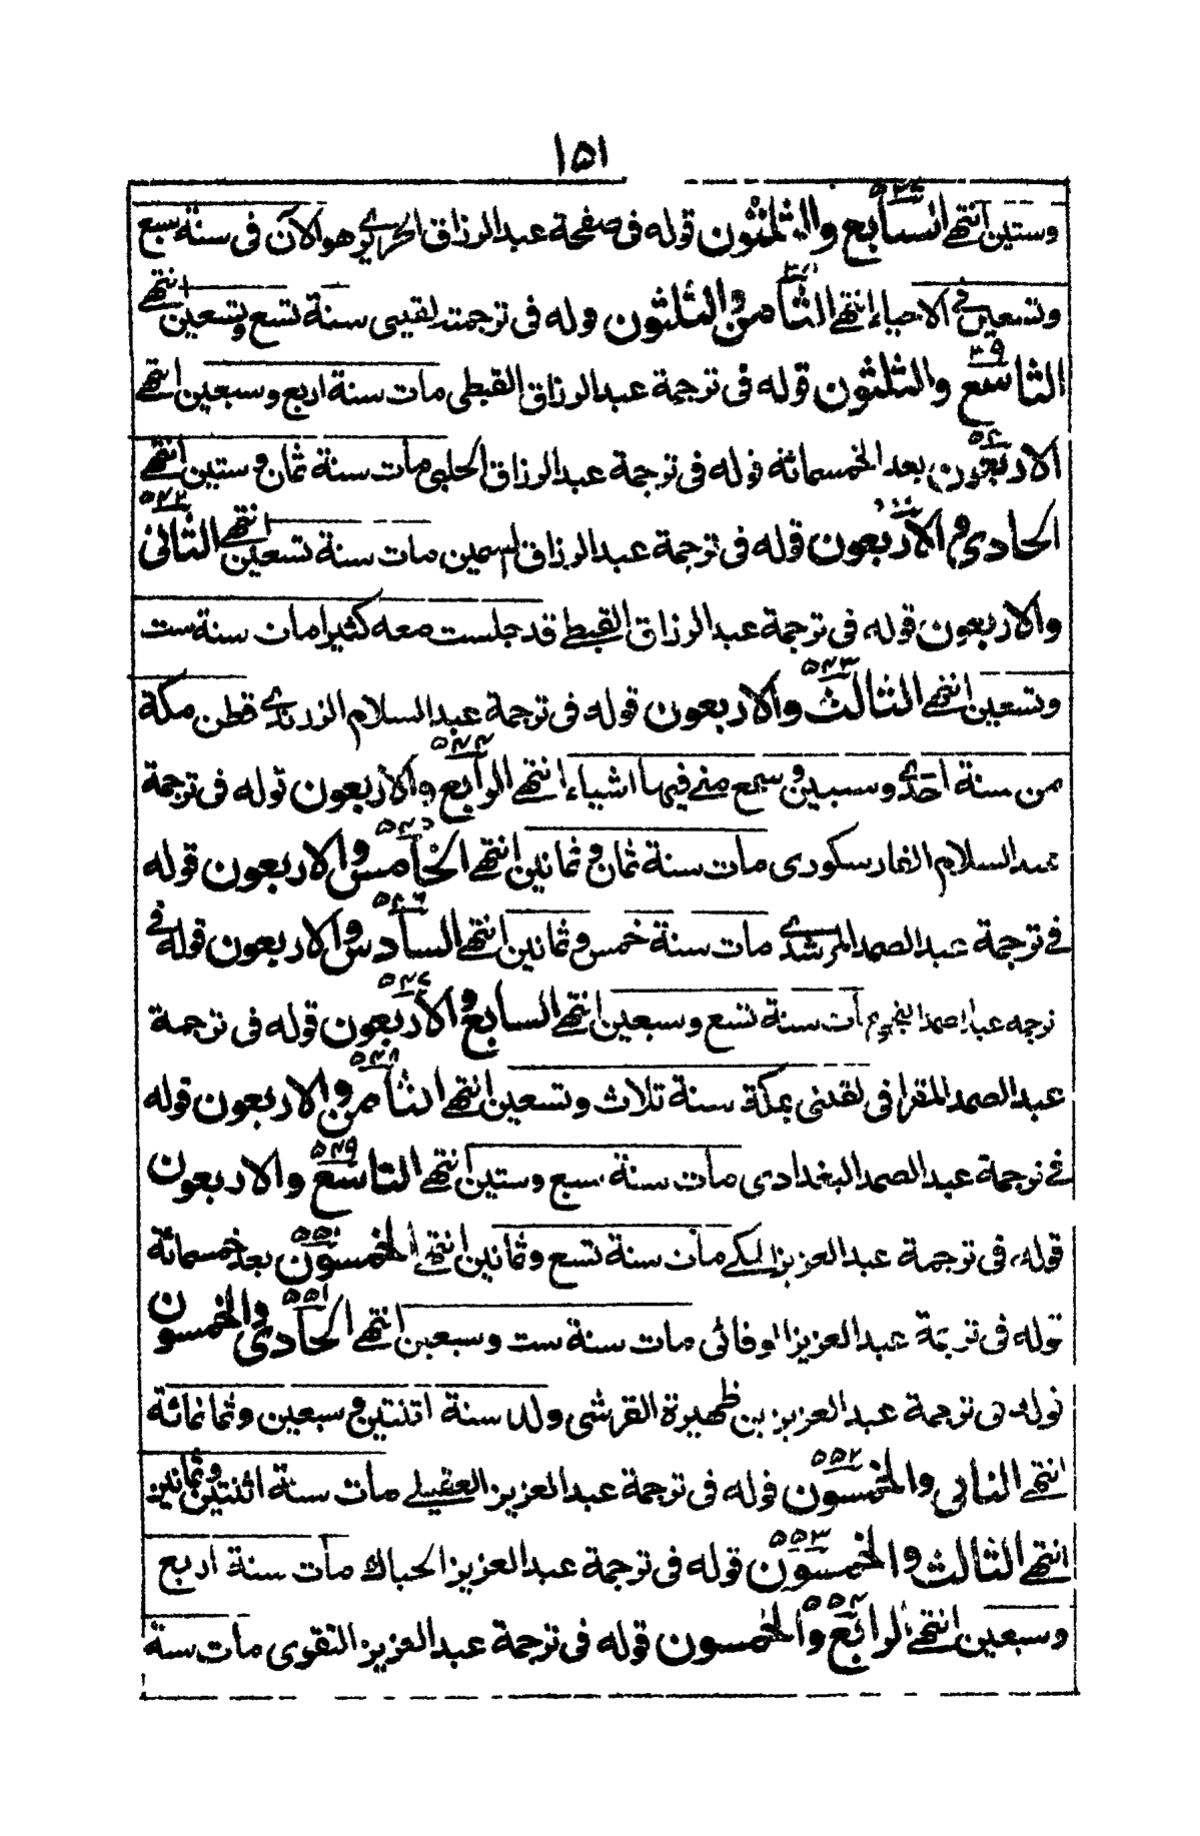 ١٥١
وستين انتهى السابع والثلثون قوله فى صفحة عبد الرزاق وهو الآن فى سنة سبع
وتسعين فى الاحياء انتهى الثامن والثلثون قوله فى ترجمته لقيى سنة تسع وتسعين انتهى
التاسع والثلثون قوله فى ترجمة عبد الرزاق القبطى مات سنة اربع وسبعين انتهى
الاربعون بعد الخمسمائة قوله فى ترجمة عبد الرزاق الحلبى مات سنة ثمان وستين انتهى
الحادى والاربعون قوله فى ترجمة عبد الرزاق مات سنة تسعين انتهى الثانى
والاربعون قوله فى ترجمة عبد الرزاق القبطى قد جلست معه كثيرا مات سنة ست
وتسعين انتهى الثالث والاربعون قوله فى ترجمة عبد السلام الزرندى قطن مكة
من سنة احدى وسبعين وسمع منى فيها اشياء انتهى الرابع والاربعون قوله فى ترجمة
عبد السلام مات سنة ثمان وثمانين انتهى الخامس والاربعون قوله
فى ترجمة عبد الصمد المرشدى مات سنة خمس وثمانين انتهى السادس والاربعون قوله فى
ترجمه عبد الصمد مات سنة تسع وسبعين انتهى السابع والاربعون قوله فى ترجمة
عبد الصمد لقينى بمكة سنة ثلاث وتسعين انتهى الثامن والاربعون قوله
فى ترجمة عبد الصمد البغدادى مات سنة سبع وستين انتهى التاسع والاربعون
قوله فى ترجمة عبد العزيز المكى مات سنة تسع وثمانين انتهى الخمسون بعد خمسمائة
قوله فى ترجمة عبد العزيز الوفائى مات سنة ست وسبعين انتهى الحادى والخمسون
قوله فى ترجمة عبد العزيز بن ظهيرة القرشى ولد سنة اثنتين وسبعين وثمانمائة
انتهى الثانى والخمسون قوله فى ترجمة عبد العزيز العقيلى مات سنة اثنتين وثمانين
انتهى الثالث والخمسون قوله فى ترجمة عبد العزيز الحباك مات سنة اربع
وسبعين انتهى الرابع والخمسون قوله فى ترجمة عبد العزيز التقوى مات سنة